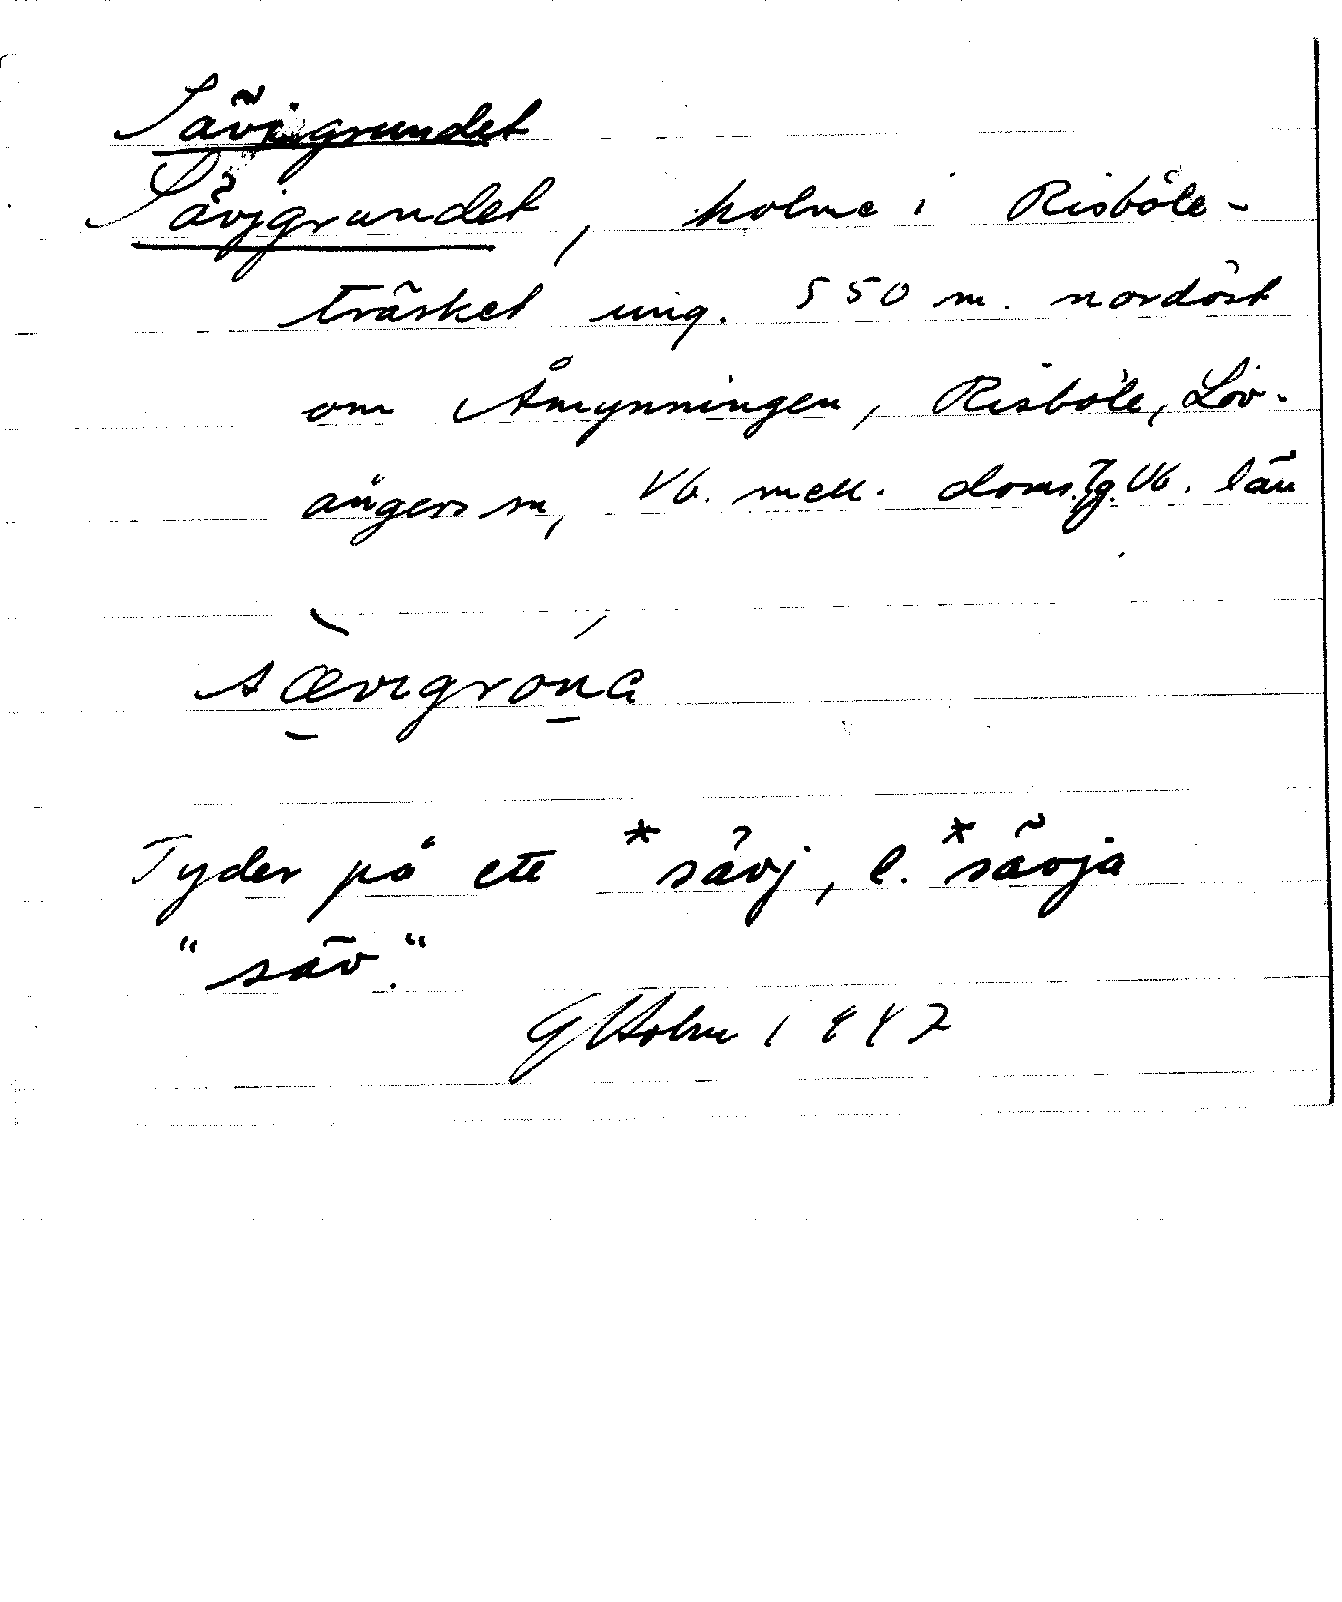 Sävigrundet
Sävjgrundet, holme i Risböle-
träsket ung. 550 m. nordöst
om Åmynningen, Risböle, Löv-
ångers sn, Vb. mell. doms. Vb. län
sævigrona
Tyder på ett *sävj, l. *sävja
"säv."
G Holm 1947